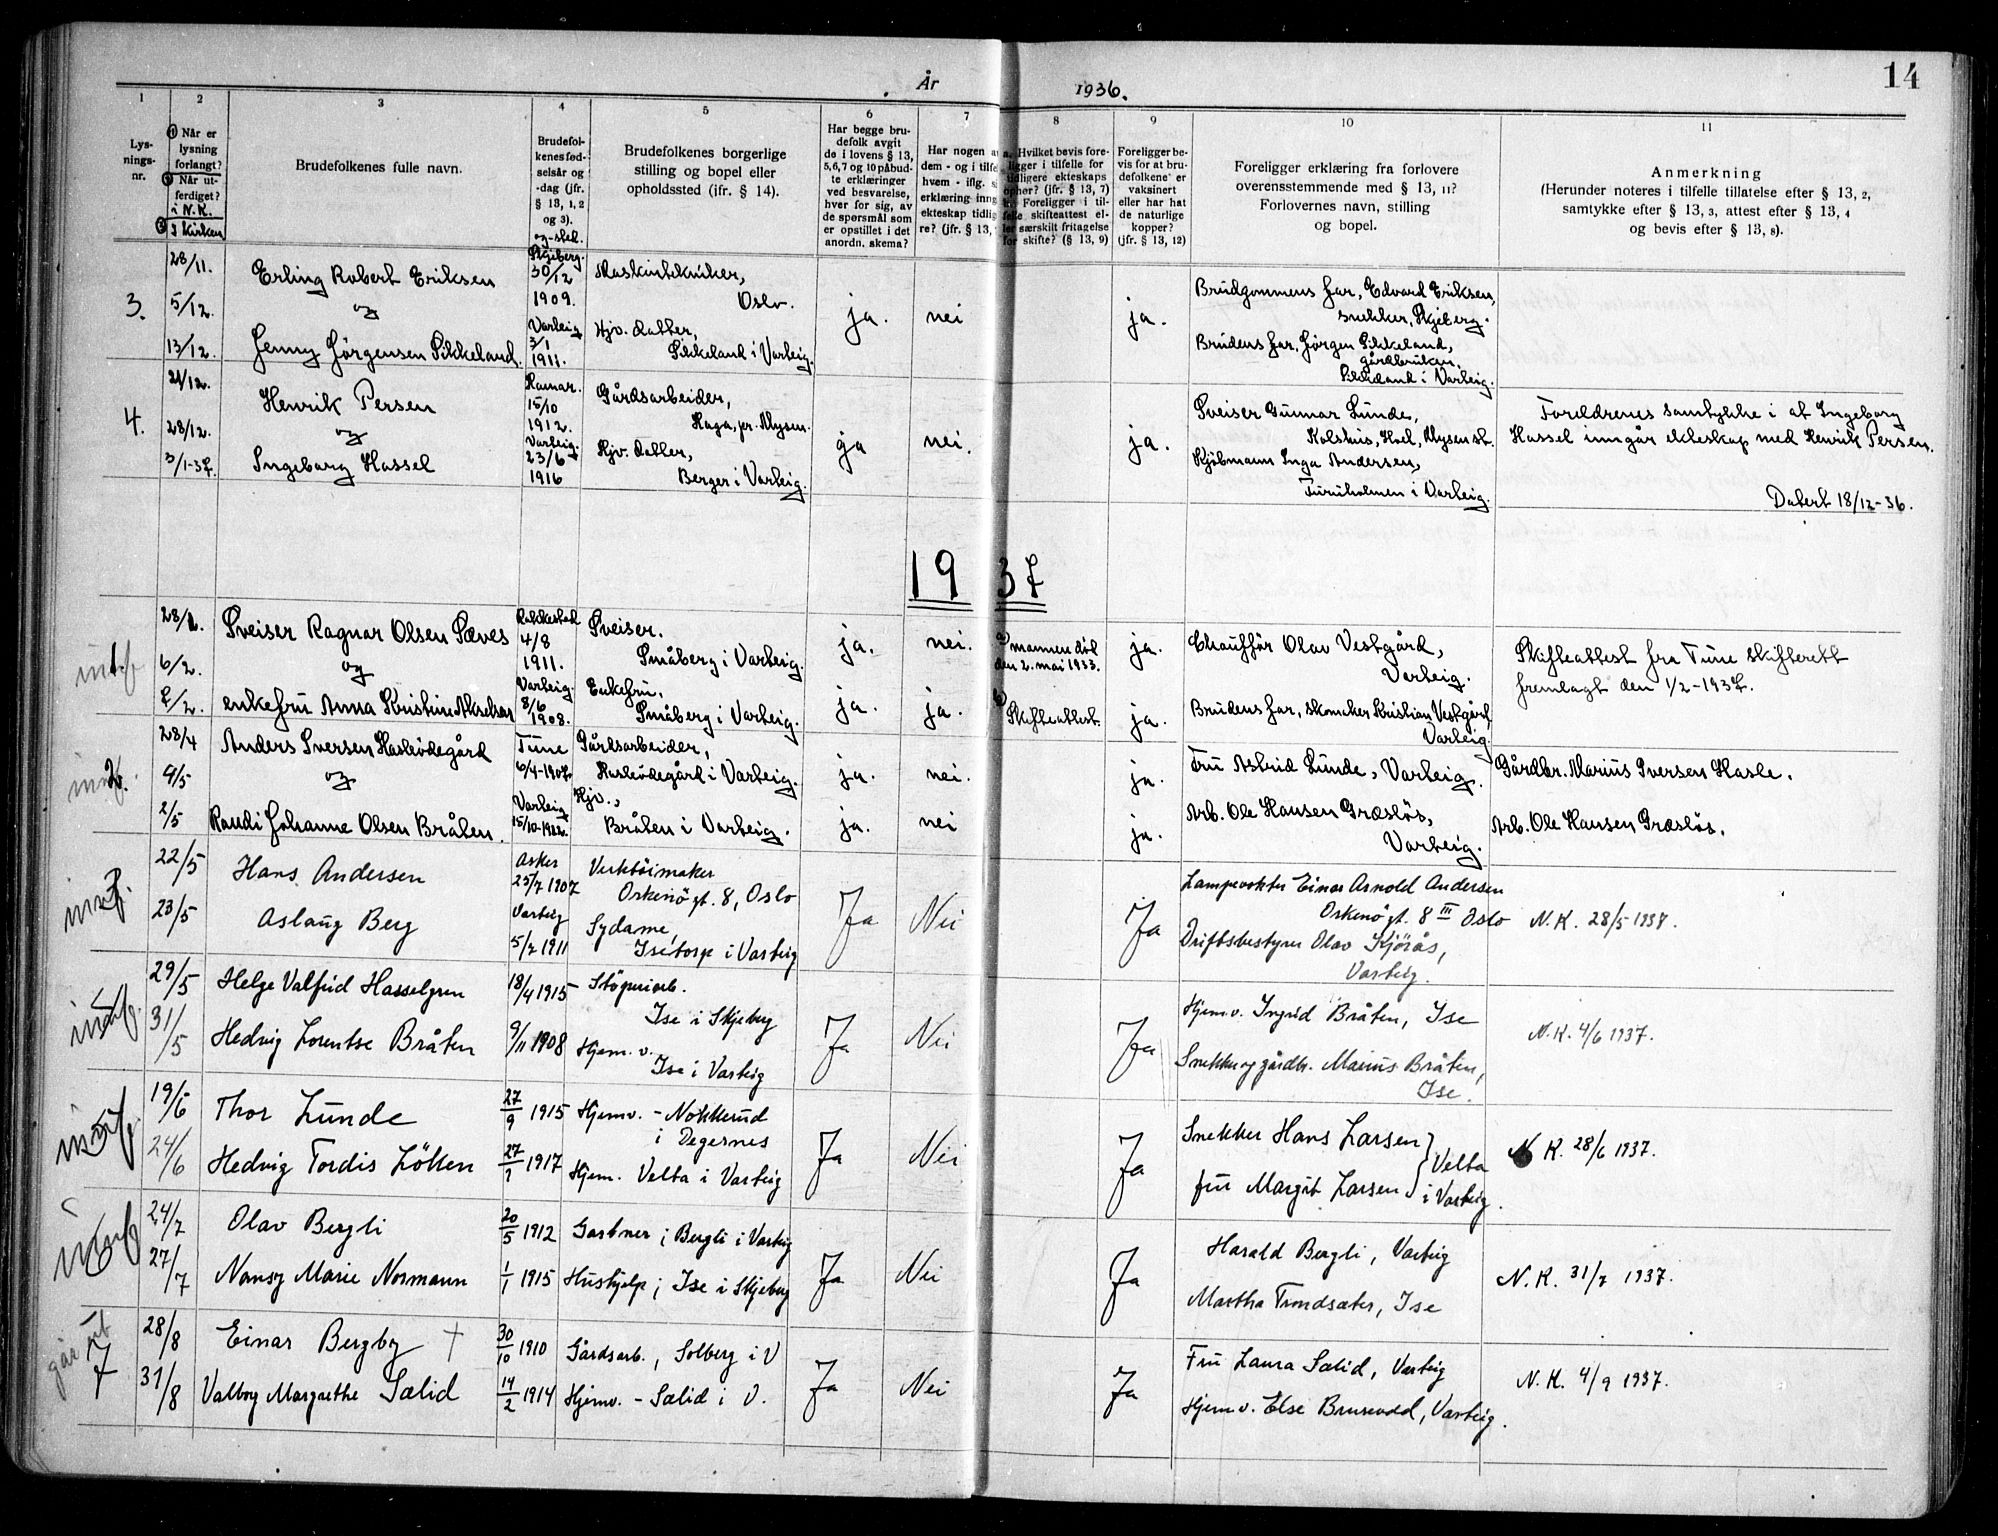 14
År 1936.
1 2 3 4 5 6 7 8 9 10 11
Lysningsnr.
Når er lysning forlangt? Når utferdiget? i N.K. I Kirken
Brudefolkenes fulle navn.
Brudefolkenes fødselsår og -dag (jfr. § 13, 1, 2 og 3). og -sted.
Brudefolkenes borgerlige stilling og bopel eller opholdssted (jfr. § 14).
Har begge brudefolk avgit de i lovens § 13, 5,6,7 og 10 påbudte erklæringer ved besvarelse, hver for sig, av de spørsmål som er opstillet i det anordn. skema?
Har nogen a
dem - og i tilfe
hvem - iflg. s
erklæring inng
ekteskap tidlig
re? (jfr. § 13,
a. Hvilket bevis foreligger i tilfelle for tidligere ekteskaps ophør? (jfr. § 13, 7)
b. Foreligger i tilfelle skifteattest eller særskilt fritagelse for skifte? (§ 13, 9)
Foreligger bevis for at brudefolkene er vaksinert eller har hat de naturlige kopper? (jfr. § 13, 12)
Foreligger erklæring fra forlovere overensstemmende med § 13, 11? Forlovernes navn, stilling og bopel.
Anmerkning
(Herunder noteres i tilfelle tillatelse efter § 13, 2, samtykke efter § 13, 3, attest efter § 13, 4 og bevis efter § 13, 8).
3.
28/11.
5/12.
13/12.
Erling Robert Eriksen
og
Jenny Jørgensen Sikkeland.
Skjeberg. 30/12 1909.
Varteig 3/1 1911.
Maskintekniker,
Oslo.
Hjv. datter,
Sikkeland i Varteig.
ja. nei ja.
Brudgommens far, Edvard Eriksen,
snekker, Skjeberg.
Brudens far, Jørgen Sikkeland,
gårdbruker,
Sikkeland i Varteig.
4.
21/12.
28/12.
3/1-37.
Henrik Persen
og
Ingeborg Hassel
Hamar. 15/10 1912.
Varteig. 23/6 1916
Gårdsarbeider,
Haga, pr. Mysen.
Hjv. datter,
Berger i Varteig.
ja nei. ja.
Sveiser Gunnar Lunde,
Kolshus, Hoel, Mysen st.
Kjøbmann Inga Andersen,
Furuholmen i Varteig.
Foreldrenes samtykke i at Ingeborg
Hassel inngår ekteskap med Henrik Persen.
Datert 18/12-36.
1937
1
28/1.
6/2.
7/2.
Sveiser Ragnar Olsen Sæves
og
enkefru Anna Kristine Akselsen
Rakkestad 4/8 1911.
Varteig. 8/6 1908.
Sveiser.
Småberg i Varteig.
Enkefru.
Småberg i Varteig.
ja. nei. a) mannen död
den 2. mai 1933. ja.
ja. ja. b) Skifteattest. ja.
Chaufför Olav Vestgård,
Varteig.
Brudens far, skomaker Kristian Vestgård,
Varteig
Skifteattest fra Tune skifterett
fremlagt den 1/2-1937.
2.
23/4
9/5
2/5
Anders Iversen Haslevödegård
og
Randi Johanne Olsen Bråten.
Tune 6/4-1907
Varteig 15/10-1912.
Gårdsarbeider,
Haslevödegård i Varteig.
Hjv.,
Bråten i Varteig.
ja. nei. ja.
ja. nei ja.
Fru Astrid Lunde, Varteig.
Arb. Ole Hansen Græslös,
Varteig.
Gårdbr. Marius Iversen Hasle.
Arb. Ole Hansen Græslös.
3.
22/5
23/5
Hans Andersen
Aslaug Berg
Asker 25/7 1907
Varteig 5/2 1911
Verktöimaker
Orkenögt. 8, Oslo
Sydame,
Isetorp i Varteig
Ja Nei Ja
Lampevokter Einar Arnold Andersen
Orkenögt. 8 III Oslo
Driftsbestyrer Olav Kjörås,
Varteig.
N.K. 28/5 1937.
29/5
31/5
Helge Valfrid Hasselgren
Hedvig Lorentse Bråten
18/4 1915
9/11 1908
Stöperiarb.
Ise i Skjeberg
Hjem. v.
Ise i Varteig
Ja Nei Ja
Hjem v. Ingrid Bråten, Ise
Snekker og gårdbr. Marius Bråten,
Ise.
N.K. 4/6 1937.
19/6
24/6
Thor Lunde
Hedvig Tordis Lökken
27/9 1915
27/1 1917
Hjemv. - Nokkerud
i Degernes
Hjem. Velta i Varteig
Ja Nei Ja
Snekker Hans Larsen
fru Margit Larsen } Velta
i Varteig.
N.K. 28/6 1937.
24/7
27/7
Olav Bergli
Nansy Marie Normann
20/5 1912
1/1 1915
Gartner; Bergli i Varteig
Hushjelp; Ise i Skjeberg
Ja Nei Ja
Harald Bergli, Varteig
Martha Trondsæter, Ise
N.K. 31/7 1937.
går ut
7
28/8
31/8
Einar Bergby +
Valborg Margrethe Sælid
30/10 1910
14/2 1914
Gårdsarb., Solberg i V
Hjemv. - Sælid i V.
Ja Nei Ja
Fru Laura Sælid, Varteig
Hjem v. Else Brusevold, Varteig.
N.K. 4/9 1937.